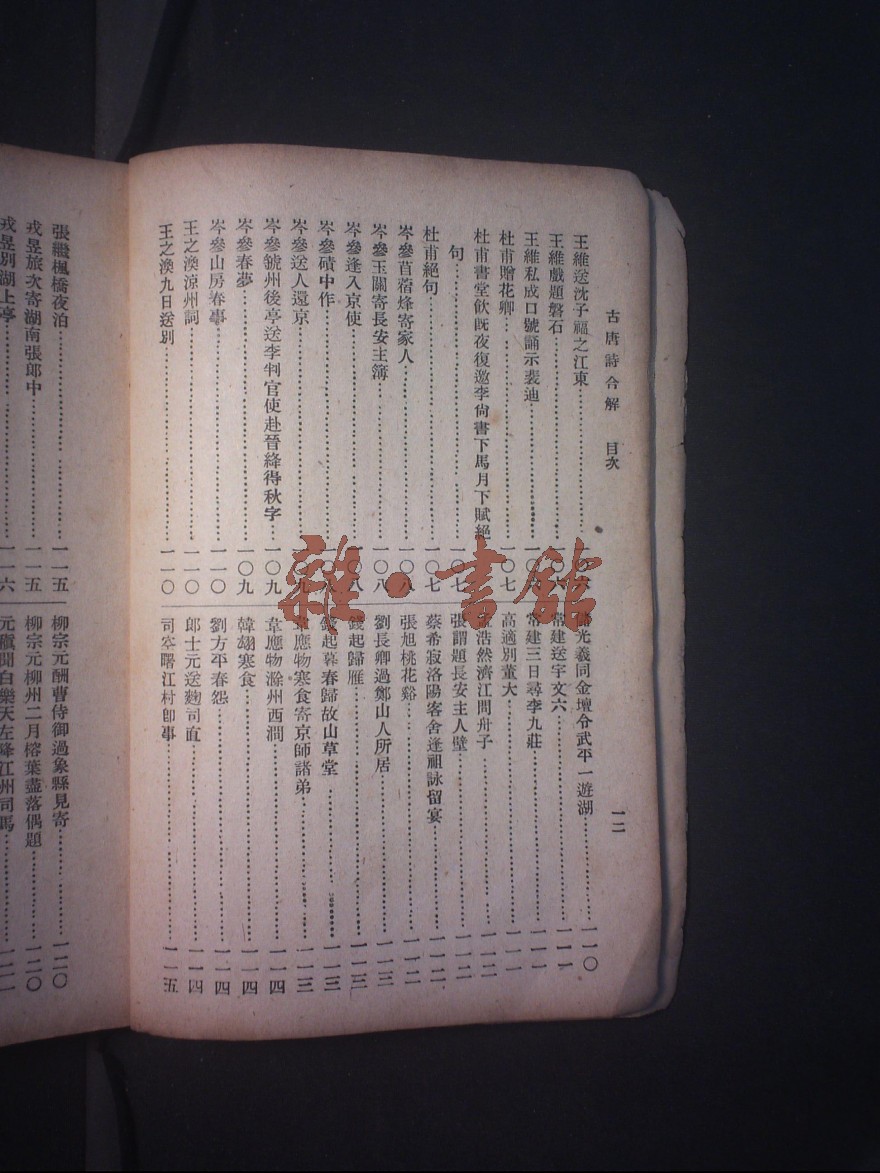 古唐詩合解 目次 一二
王維送沈子福之江東 〇六
王維戲題磐石 一〇六
王維私成口號誦示裴迪
杜甫贈花卿 一〇七
杜甫書堂飲既夜復邀李尙書下馬月下賦絕
句 一〇七
杜甫絕句 一〇七
岑參苜蓿烽寄家人 一〇八
岑參玉關寄長安主簿 一〇八
岑參逢入京使 一〇八
岑參磧中作 一〇八
岑參送人還京 一〇九
岑參虢州後亭送李判官使赴晉絳得秋字 一〇九
岑參春夢 一〇九
岑參山房春事 一一〇
王之渙涼州詞 一一〇
王之渙九日送別 一一〇
儲光羲同金壇令武平一遊湖 一一〇
常建送宇文六 一一一
常建三日尋李九莊 一一一
高適別董大 一一一
孟浩然濟江問舟子 一一二
張謂題長安主人壁 一一二
蔡希寂洛陽客舍逢祖詠留宴 一一二
張旭桃花谿 一一二
劉長卿過鄭山人所居 一一三
錢起歸雁 一一三
錢起暮春歸故山草堂 一一三
韋應物寒食寄京師諸弟 一一三
韋應物滁州西澗 一一四
韓翃寒食 一一四
劉方平春怨 一一四
郎士元送麴司直 一一四
司空曙江村卽事 一一五
張繼楓橋夜泊 一一五
戎昱旅次寄湖南張郎中 一一五
戎昱別湖上亭 一一六
柳宗元酬曹侍御過象縣見寄 一二〇
柳宗元柳州二月榕葉盡落偶題 一二〇
元稹聞白樂天左降江州司馬
雜·書館